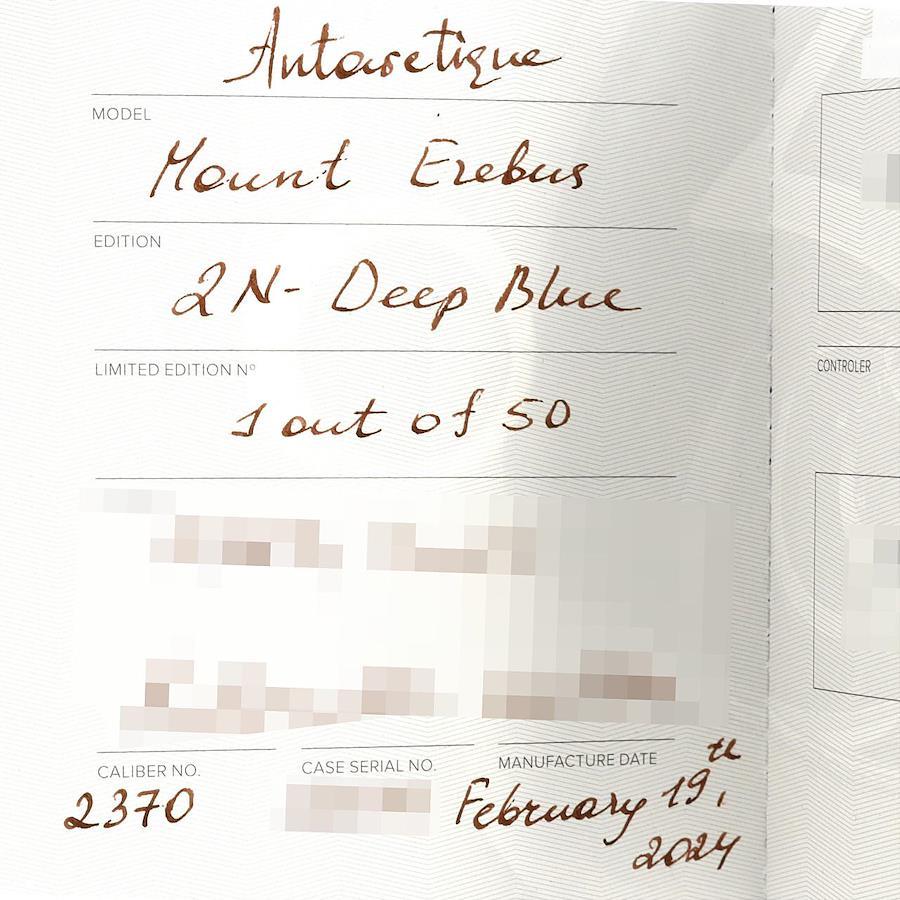 Antarctique
MODEL
Mount Erebus
EDITION
2N- Deep Blue
LIMITED EDITION Nº
1 out of 50
CALIBER NO.
2370
CASE SERIAL NO.
MANUFACTURE DATE
February 19th,
2024
CONTROLER